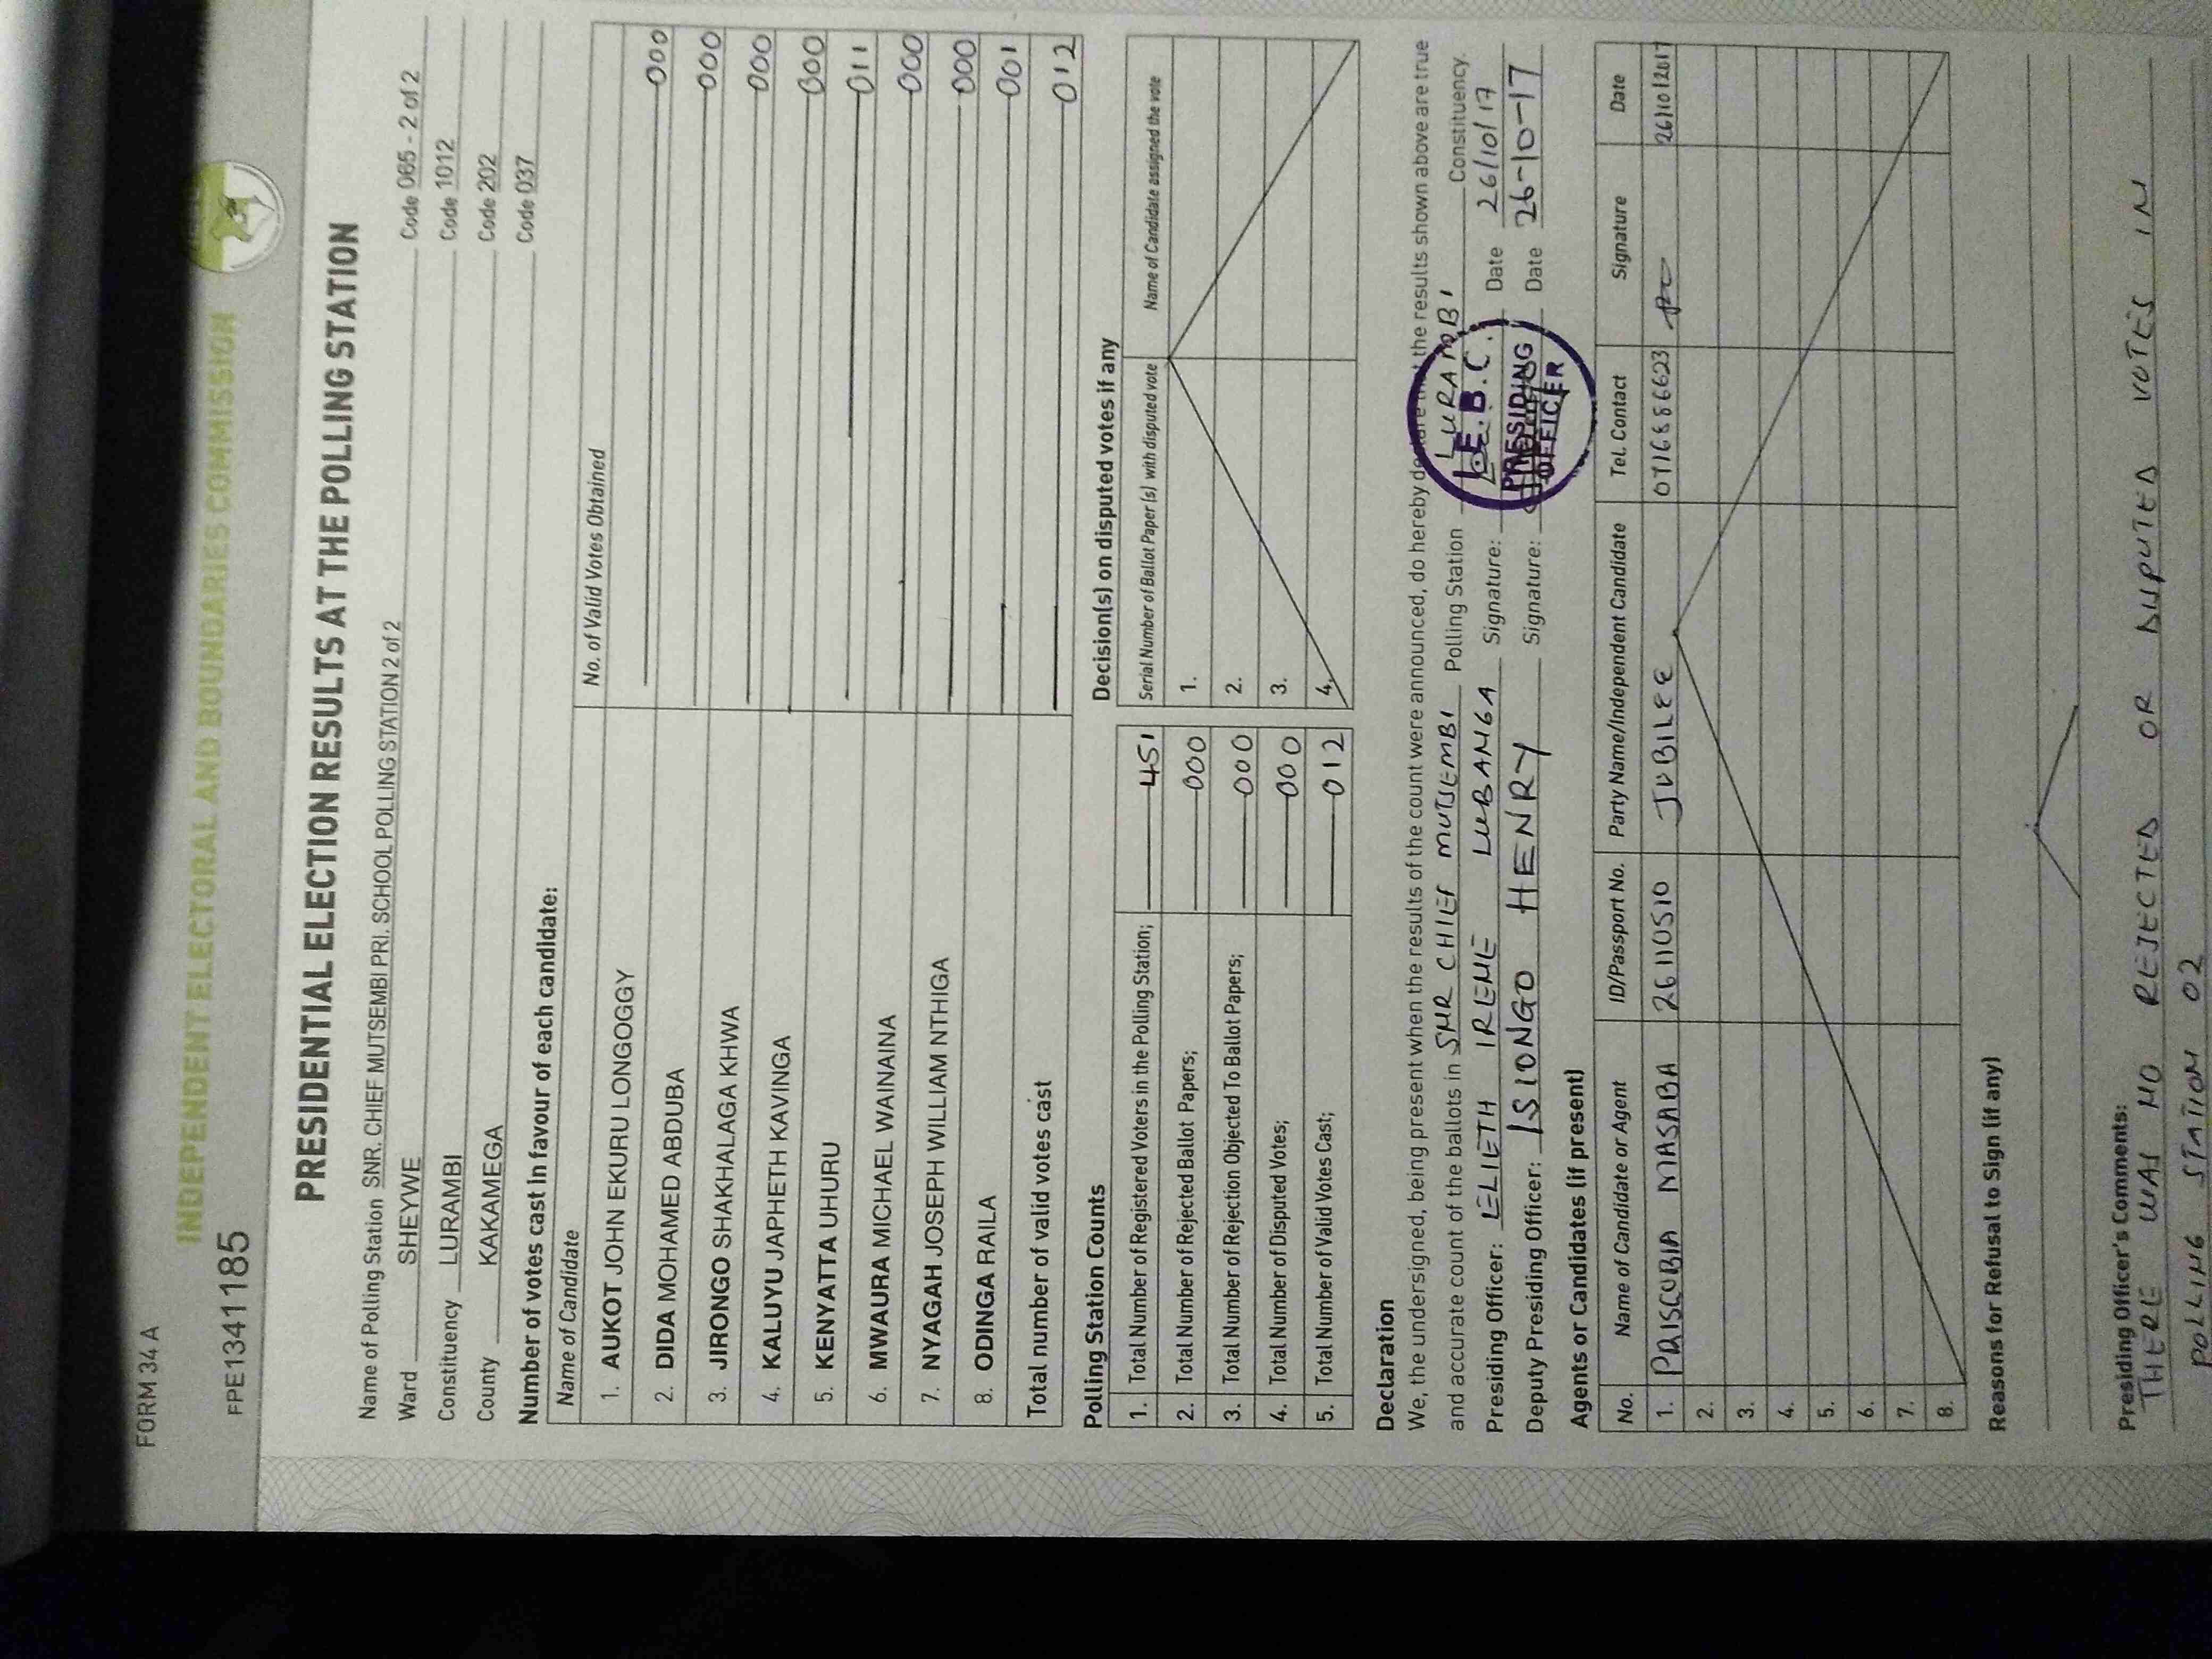 FORM 34 A
INDEPENDENT ELECTORAL AND BOUNDARIES COMMISSION
FPE1341185
PRESIDENTIAL ELECTION RESULTS AT THE POLLING STATION
Name of Polling Station SNR. CHIEF MUTSEMBI PRI. SCHOOL POLLING STATION 2 of 2 Code 065 - 2 of 2
Ward SHEYWE Code 1012
Constituency LURAMBI Code 202
County KAKAMEGA Code 037
Number of votes cast in favour of each candidate:
Name of Candidate No. of Valid Votes Obtained
1. AUKOT JOHN EKURU LONGOGGY 000
2. DIDA MOHAMED ABDUBA 000
3. JIRONGO SHAKHALAGA KHWA 000
4. KALUYU JAPHETH KAVINGA 000
5. KENYATTA UHURU 011
6. MWAURA MICHAEL WAINAINA 000
7. NYAGAH JOSEPH WILLIAM NTHIGA 000
8. ODINGA RAILA 001
Total number of valid votes cast 012
Polling Station Counts
1. Total Number of Registered Voters in the Polling Station; 451
2. Total Number of Rejected Ballot Papers; 000
3. Total Number of Rejection Objected To Ballot Papers; 000
4. Total Number of Disputed Votes; 000
5. Total Number of Valid Votes Cast; 012
Decision(s) on disputed votes if any
Serial Number of Ballot Paper (s) with disputed vote Name of Candidate assigned the vote
1.
2.
3.
4.
Declaration
We, the undersigned, being present when the results of the count were announced, do hereby declare that the results shown above are true
and accurate count of the ballots in SNR CHIEF MUTSEMBI Polling Station LURAMBI Constituency.
Presiding Officer: ELIETH IRENE LUBANGA Signature: Date 26/10/17
Deputy Presiding Officer: ISIONGO HENRY Signature: Date 26-10-17
I.E.B.C.
PRESIDING
OFFICER
Agents or Candidates (if present)
No. Name of Candidate or Agent ID/Passport No. Party Name/Independent Candidate Tel. Contact Signature Date
1. PRISCUBIA MASABA 26110510 JUBILEE 0716886623 26/10/2017
2.
3.
4.
5.
6.
7.
8.
Reasons for Refusal to Sign (if any)
Presiding Officer's Comments:
THERE WAS NO REJECTED OR DISPUTED VOTES IN
POLLING STATION 02